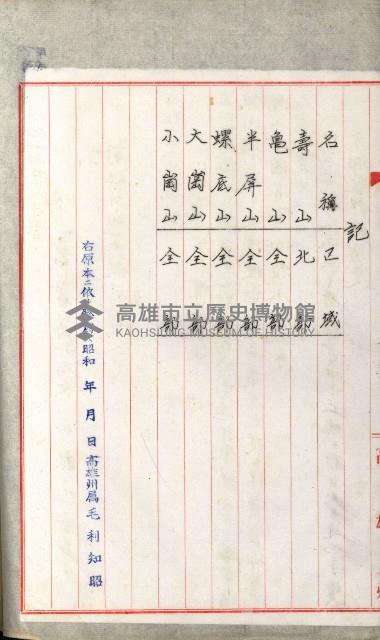 記
名稱 区域
壽山 北部
亀山 全部
半屏山 全部
螺底山 全部
大崗山 全部
小崗山 全部
右原本ニ依リ
昭和 年 月 日 高雄州属 毛利知昭
高雄市立歷史博物館
KAOHSIUNG MUSEUM OF HISTORY
高雄州